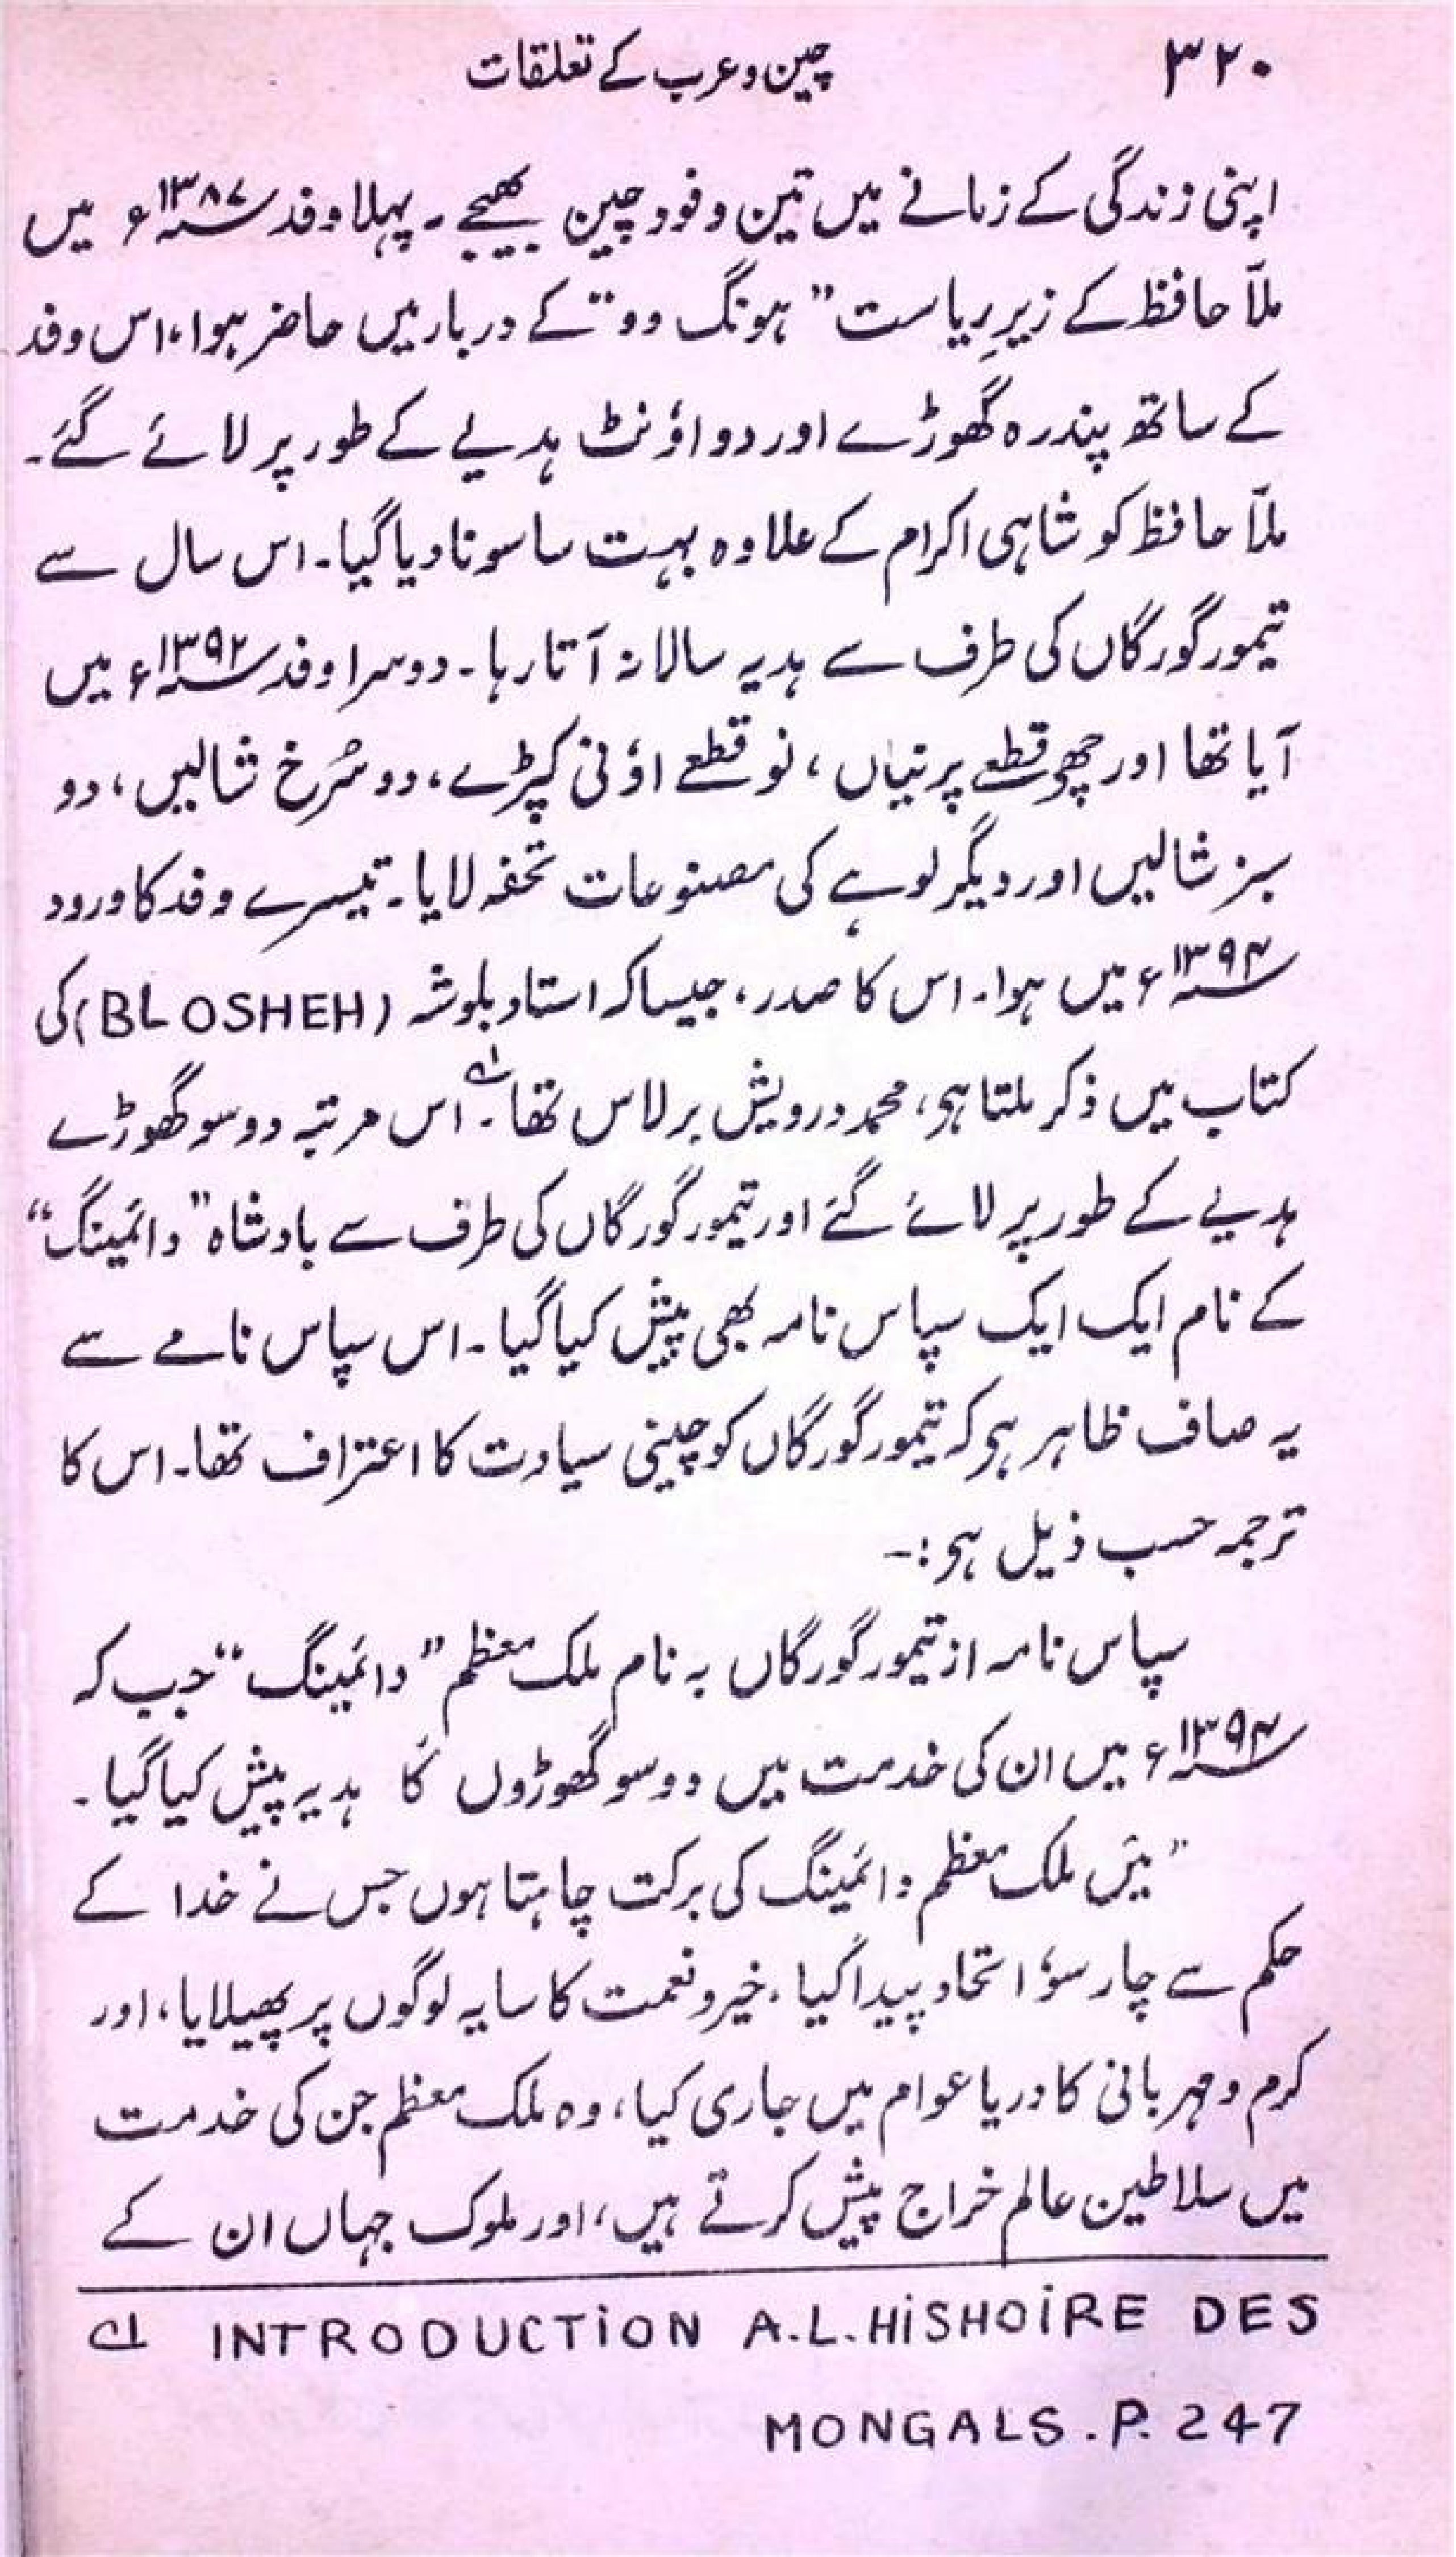 ۳۲۰ چین و عرب کے تعلقات
اپنی زندگی کے زمانے میں تین وفود چین بھیجے ۔ پہلا وفد ۱۳۸۷؁ء میں
ملّا حافظ کے زیرِ ریاست ” ہونگ وو “ کے دربار میں حاضر ہوا، اس وفد
کے ساتھ پندرہ گھوڑے اور دو اؤنٹ ہدیے کے طور پر لائے گئے۔
ملّا حافظ کو شاہی اکرام کے علاوہ بہت سا سونا دیا گیا۔ اس سال سے
تیمور گورگاں کی طرف سے ہدیہ سالانہ آتا رہا۔ دوسرا وفد ۱۳۹۲؁ء میں
آیا تھا اور چھو قطعے پرنیاں ، نو قطعے اؤنی کپڑے، دو سُرخ شالیں ، دو
سبز شالیں اور دیگر لوہے کی مصنوعات تحفہ لایا۔ تیسرے وفد کا ورود
۱۳۹۴؁ء میں ہوا۔ اس کا صدر، جیسا کہ استاد بلوشہ (BLOSHEH) کی
کتاب میں ذکر ملتا ہو، محمد درویش برلاس تھا۔ ۱؎ اس مرتبہ دو سو گھوڑے
ہدیے کے طور پر لائے گئے اور تیمور گورگاں کی طرف سے بادشاہ ” دائمینگ “
کے نام ایک ایک سپاس نامہ بھی پیش کیا گیا۔ اس سپاس نامے سے
یہ صاف ظاہر ہو کہ تیمور گورگاں کو چینی سیادت کا اعتراف تھا۔ اس کا
ترجمہ حسب ذیل ہو :۔
سپاس نامہ از تیمور گورگاں بہ نام ملک معظم ” دائمینگ “ جب کہ
۱۳۹۴؁ء میں ان کی خدمت میں دو سو گھوڑوں کا ہدیہ پیش کیا گیا ۔
” میں ملک معظم دائمینگ کی برکت چاہتا ہوں جس نے خدا کے
حکم سے چار سؤ اتحاد پیدا کیا ، خیر و نعمت کا سایہ لوگوں پر پھیلایا، اور
کرم و مہربانی کا دریا عوام میں جاری کیا، وہ ملک معظم جن کی خدمت
میں سلاطین عالم خراج پیش کرتے ہیں، اور ملوک جہاں ان کے
۱؎ INTRODUCTION A.L.HISHOIRE DES
MONGALS . P. 247